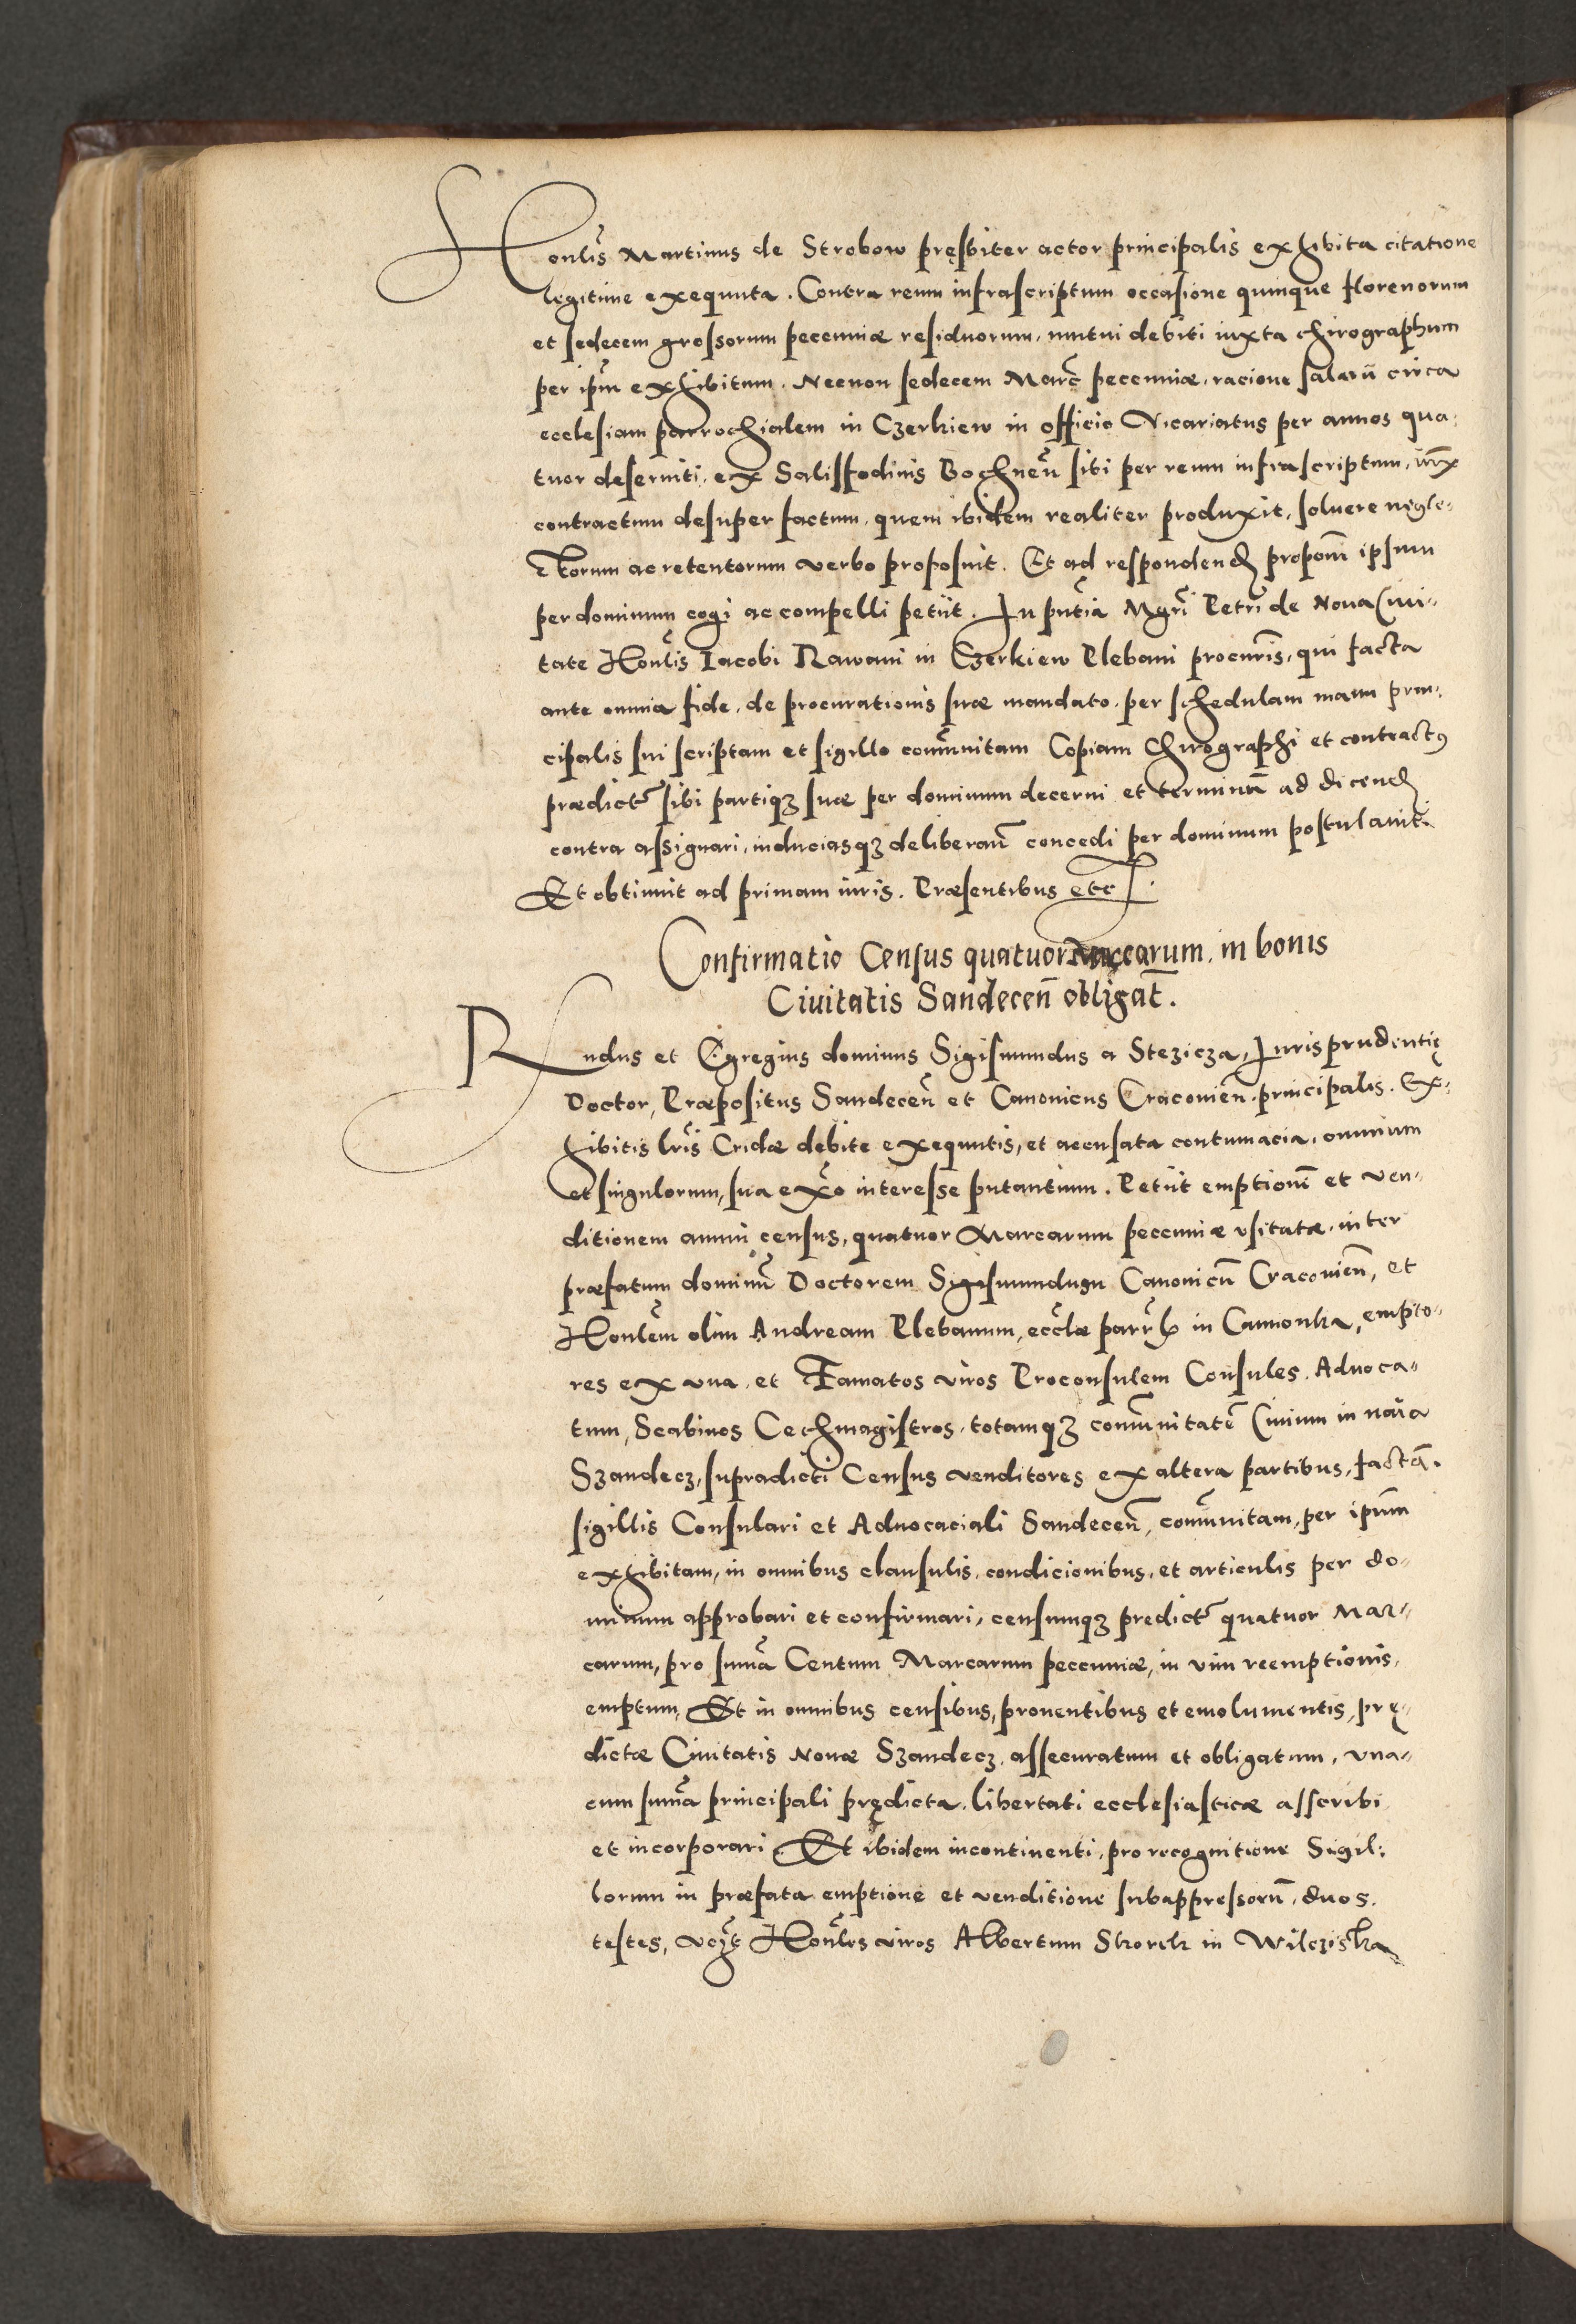 Honlis Martinus de Strobow pręsbiter actor principalis exhibita citatione
legitime exequuta. Contra reum infrascriptum occasione quinque florenorum
et sedecem grossorum pecuniæ residuorum, mutui debiti iuxta chirographum
per ipm exhibitum. Necnon sedecem Marc pecuniæ, racione salarii circa
ecclesiam parrochialem in Czerkiew in officio Vicariatus per annos qua-
tuor deserviti, ex Salisfodinis Bochnen sibi per reum infrascriptum, iux
contractum desuper factum, quem ibidem realiter produxit, soluere negle-
ctorum ac retentorum verbo proposuit. Et ad respondend proponi ipsum
per dominum cogi ac compelli petiit. In pntia Mgri Petri de Noua Ciui-
tate Honlis Iacobi Rawani in Czerkiew Plebani procuris, qui facta
ante omnia fide, de procurationis suæ mandato, per schedulam manu prin-
cipalis sui scriptam et sigillo comunitam Copiam Chirographi et contractus
prædict sibi partiqz suæ per dominum decerni et terminum ad dicend
contra assignari, induciasqz deliberan concedi per dominum postulauit.
Et obtinuit ad primam iuris. Præsentibus etc.
Confirmatio Census quatuor Marcarum, in bonis
Ciuitatis Sandecen obligat.
Rndus et Egregius dominus Sigismundus a Stezicza, Jurisprudentię
Doctor, Præpositus Sandecen et Canonicus Cracouien, principalis. Ex-
hibitis lris Cridæ debite exequutis, et accusata contumacia, omnium
et singulorum, sua exo interesse putantium. Petiit emptioni et ven-
ditionem annui census, quatuor Marcarum pecuniæ vsitatæ, inter
præfatum dominu Doctorem Sigismundum Canonicu Cracouien, et
Honlem olim Andream Plebanum, ecclæ parrh in Camionka, empto-
res ex vna, et Famatos viros Proconsulem Consules, Aduoca-
tum, Scabinos Cechmagistros, totamqz comunitate Ciuium in noua
Szandecz, supradicti Census venditores ex altera partibus, facta.
sigillis Consulari et Aduocaciali Sandecen, comunitam, per iprum
exhibitam, in omnibus clausulis, condicionibus, et articulis per do-
minum approbari et confirmari, censumqz predict quatuor Mar-
carum, pro suma Centum Marcarum pecuniæ, in vim reemptionis,
emptum, Et in omnibus censibus, prouentibus et emolumentis, prę-
dictæ Ciuitatis Nouæ Szandecz, assecuratum et obligatum, vna-
cum suma principali prędicta, libertati ecclesiasticæ asscribi
et incorporari. Et ibidem incontinenti, pro recognitione Sigil-
lorum in præfata emptione et venditione subappressoru, duos
testes, vczt Honles viros Albertum Skorek in Wilcziska